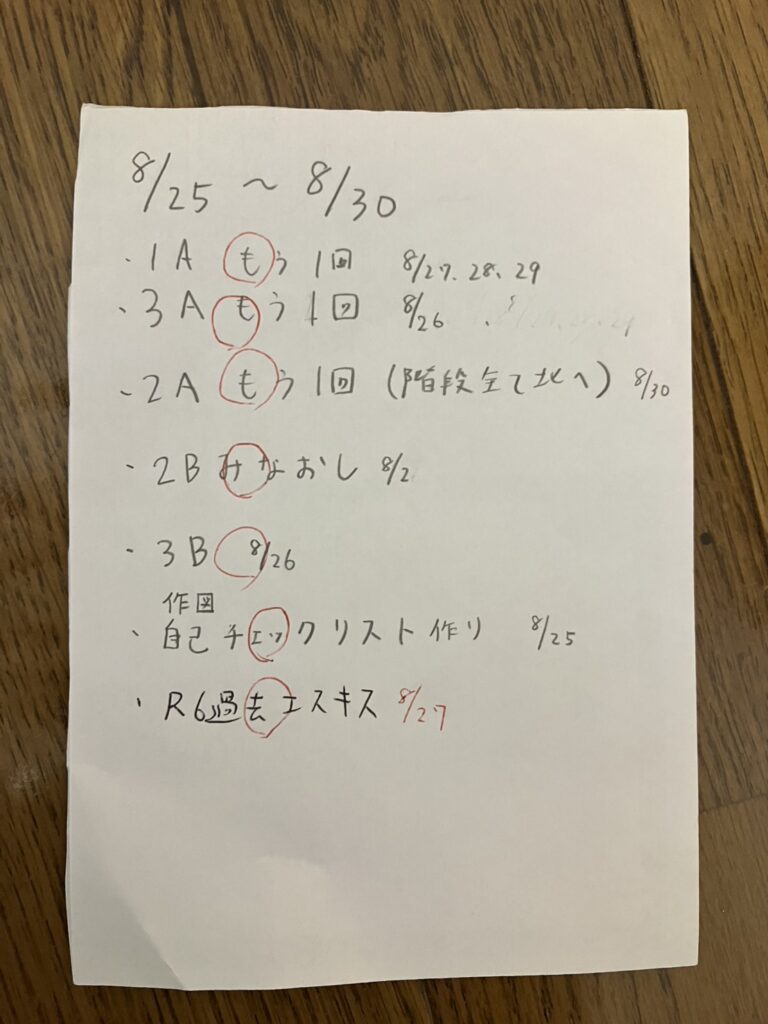 8/25 〜 8/30
・1A もう1回 8/27、28、29
・3A もう1回 8/26
・2A もう1回 (階段全て北へ) 8/30
・2B みなおし 8/2
・3B 8/26
作図
・自己チェックリスト作り 8/25
・R6過去エスキス 8/27